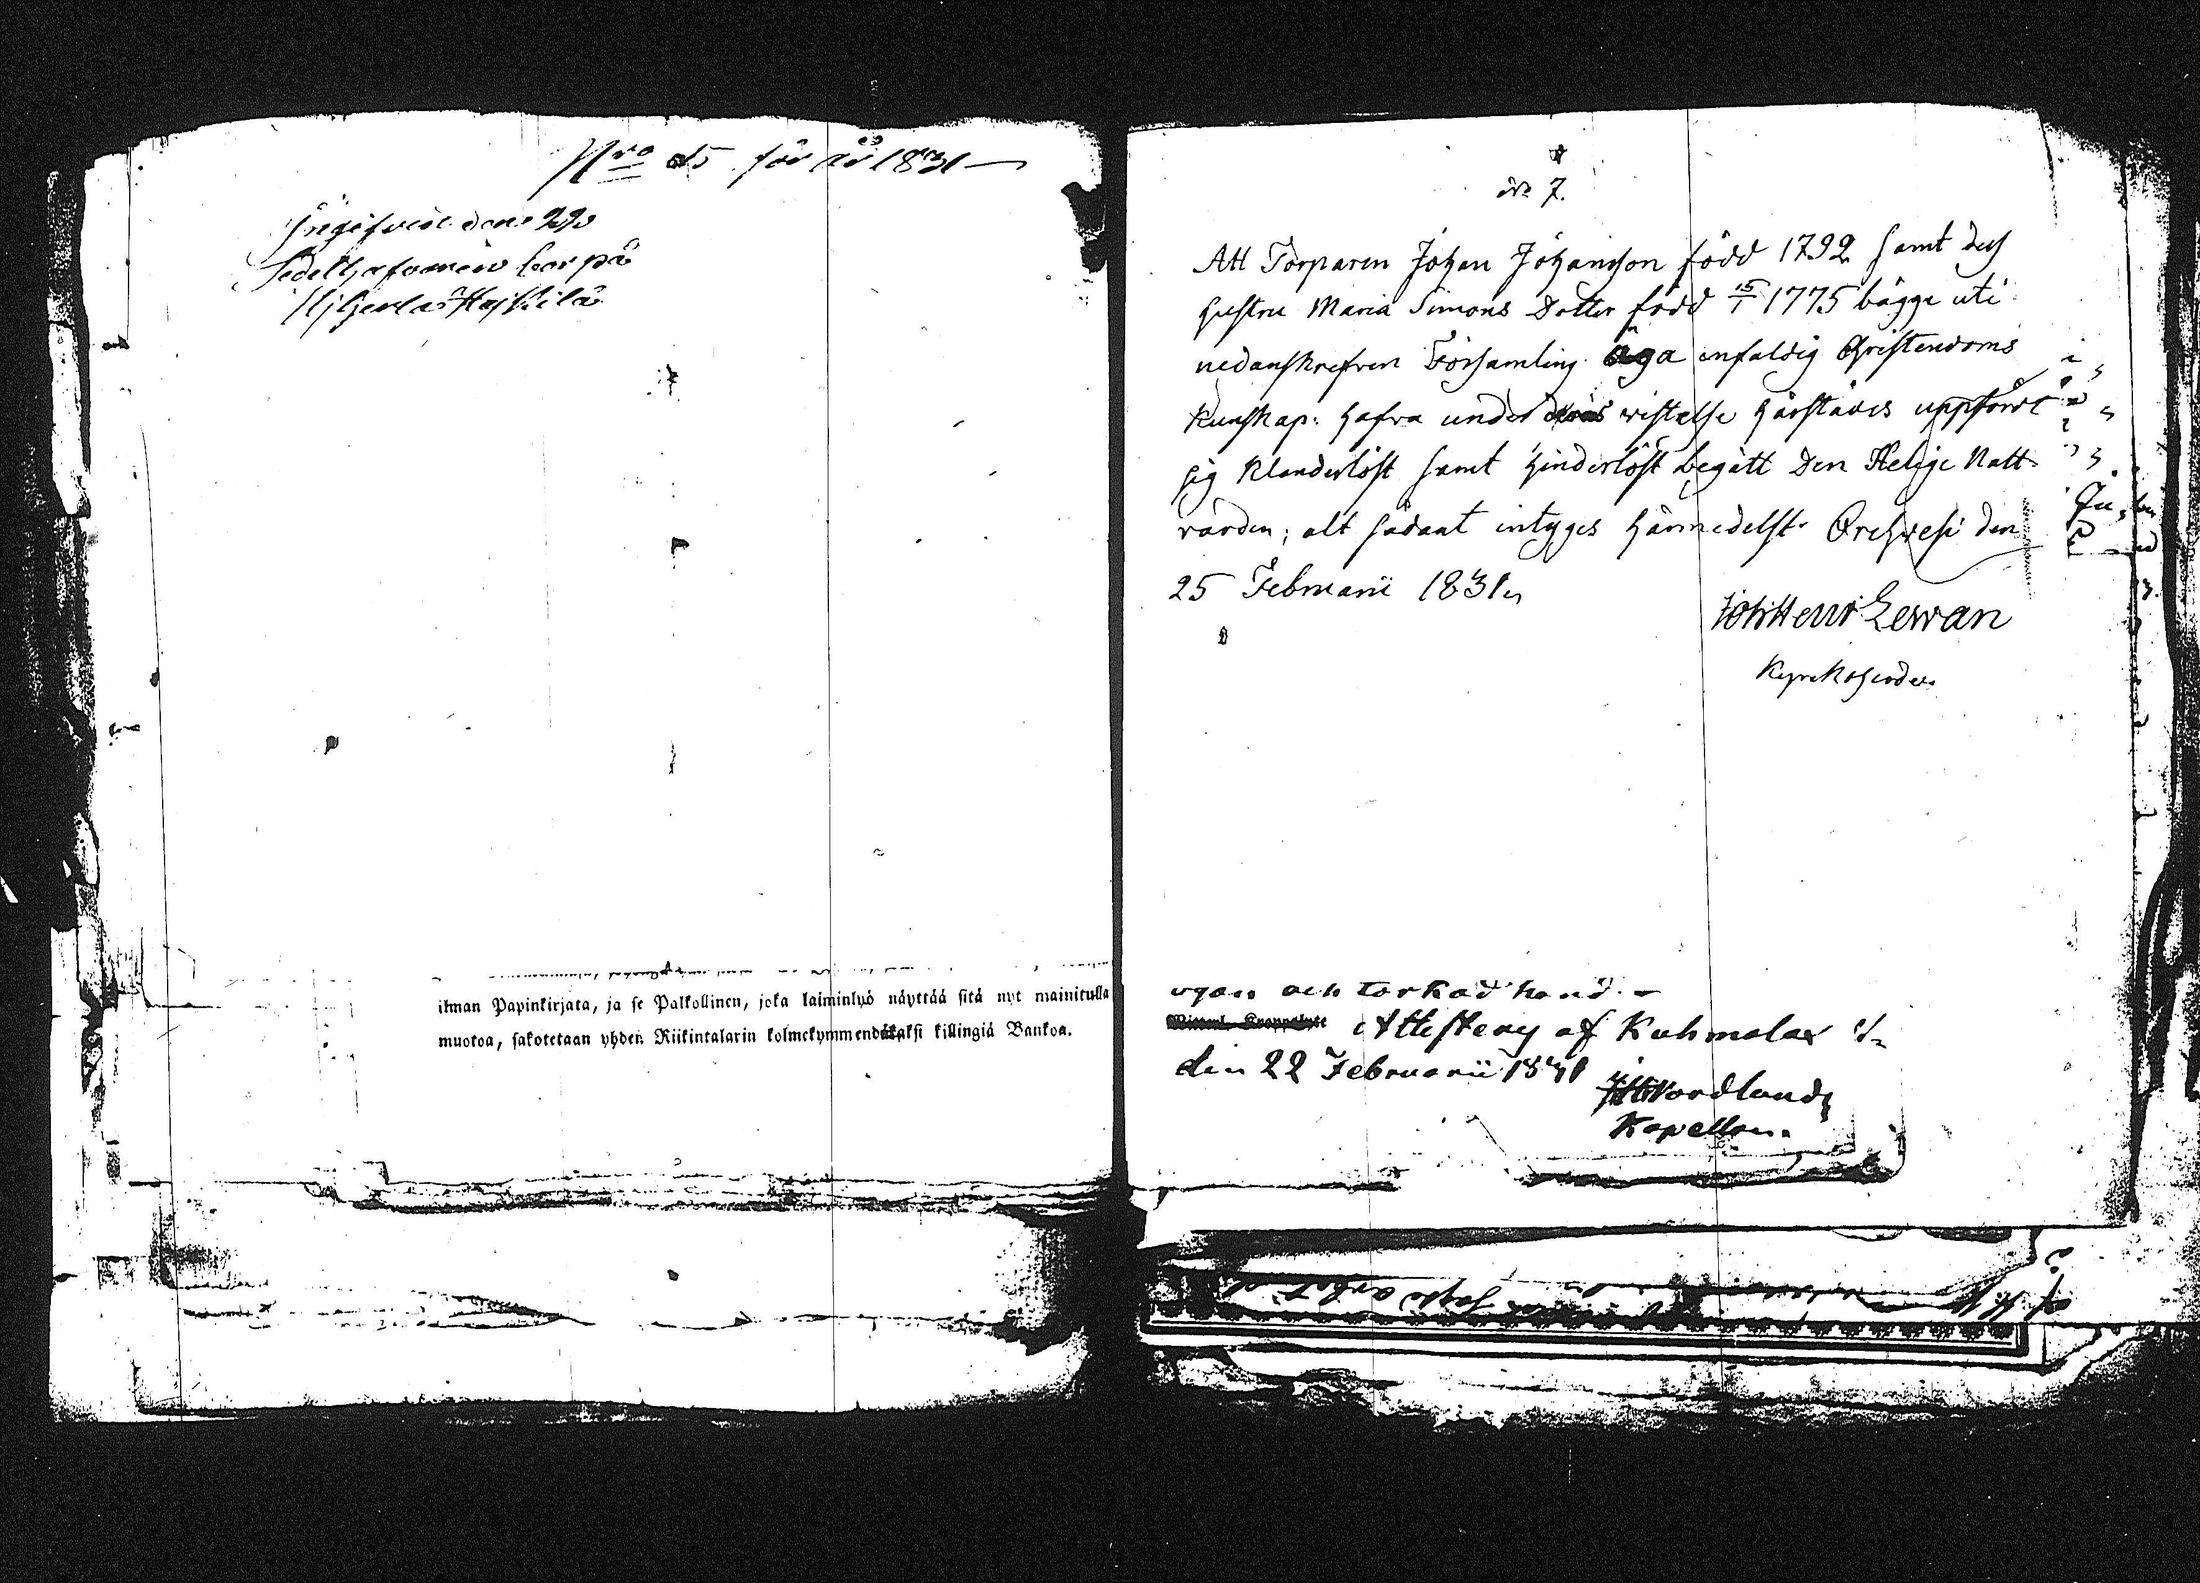 Nro 25 för år 1831
Ingifvin den 22
Sedelhafvaren bor på
ilman Papinkirjata, ja se Palkollinen, joka laiminlyö näyttää sitä nyt mainitulla
muotoa, sakotetaan yhden Riikintalarin kolmekymmendäkaksi killingiä Bankoa.
N 7.
Att Torparen Johan Johansson född 1792 samt dess
hustru Maria Simons Dotter född 1775 bägge uti
nedanskrefven Församling äga enfaldig Christendoms
Kunskap: hafva under deras vistelse härstädes uppfördt
sig klanderlöst samt hinderlöst begått Den Helige Natt
varden; alt sådant intyges härmedelst. Orehvesi den
25 Februarii 1831
Joh: Henr Lewan
Kyrkoherde
ögon och torkad hand.
Attesteras af Kuhmalax
den 22 Februarii 1831
Nordlund
Kapellan.